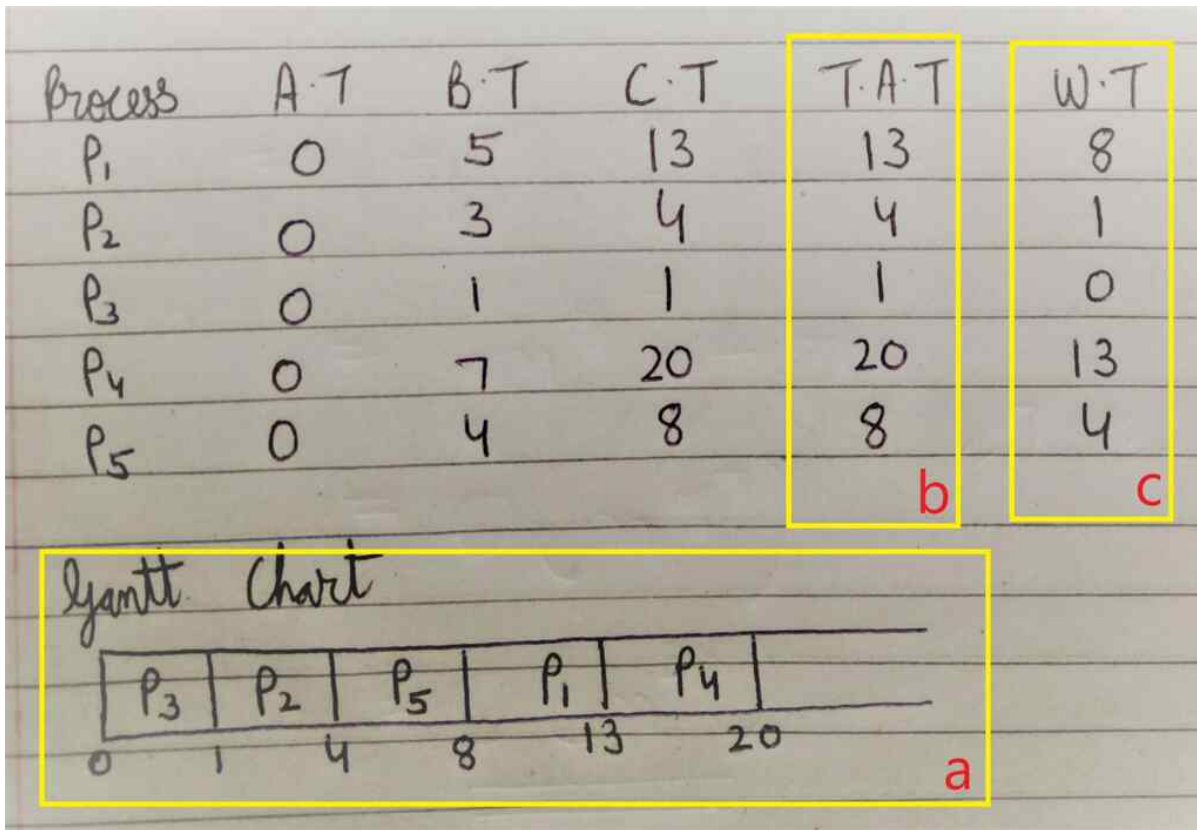 Process A.T B.T C.T T.A.T W.T
P1 0 5 13 13 8
P2 0 3 4 4 1
P3 0 1 1 1 0
P4 0 7 20 20 13
P5 0 4 8 8 4
b c
Gantt Chart
P3 P2 P5 P1 P4
0 1 4 8 13 20
a